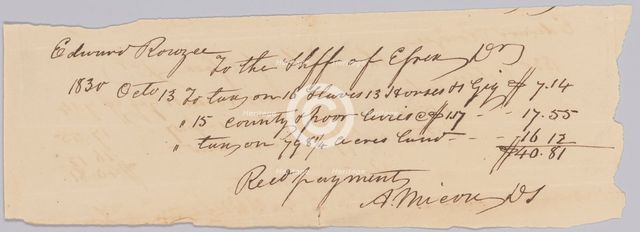 Edward Rowzee
To the Shff of Essex Dr
1830 Octo 13 To tax on 16 Slaves 13 Horses &1 Gig $ 7.14
" 15 county & poor levies @ $1.17 - - 17.55
" tax on 798¼ acres land - - 16 12
$40.81
Recd payment
A. Micou DS
Heritage Images